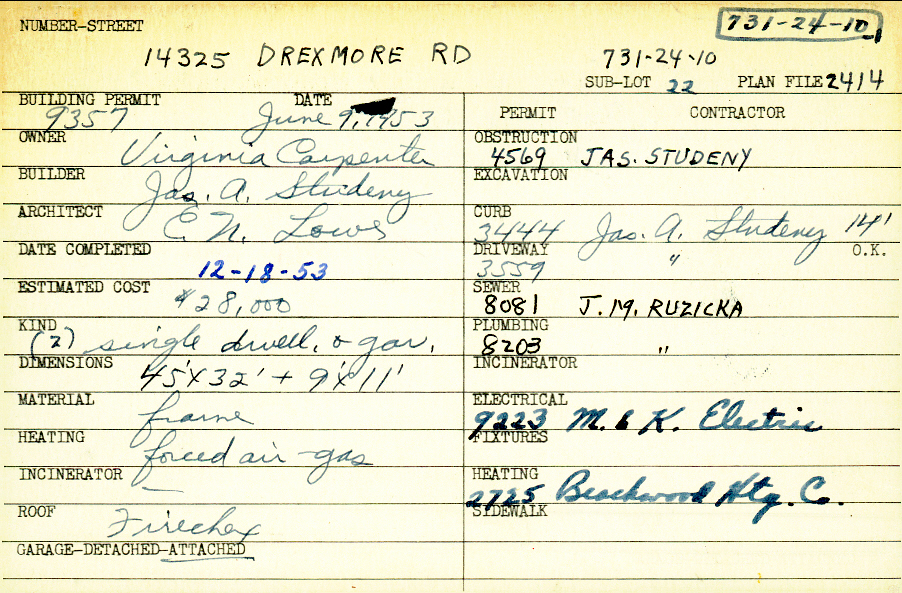 NUMBER-STREET
731-24-10
14325 DREXMORE RD 731-24-10
SUB-LOT 22 PLAN FILE 2414
BUILDING PERMIT DATE
9357 June 9, 1953
OWNER Virginia Carpenter
BUILDER Jas. A. Studeny
ARCHITECT E. N. Lowe
DATE COMPLETED 12-18-53
ESTIMATED COST $28,000
KIND (2) single dwell. & gar.
DIMENSIONS 45'X32' + 9'X11'
MATERIAL frame
HEATING forced air-gas
INCINERATOR –
ROOF Firechex
GARAGE-DETACHED-ATTACHED
PERMIT CONTRACTOR
OBSTRUCTION
4569 JAS. STUDENY
EXCAVATION
CURB
3444 Jas. A. Studeny 14'
DRIVEWAY " O.K.
3559
SEWER
8081 J. M. RUZICKA
PLUMBING
8203 "
INCINERATOR
ELECTRICAL
9223 M. & K. Electric
FIXTURES
HEATING
2725 Beachwood Htg. Co.
SIDEWALK